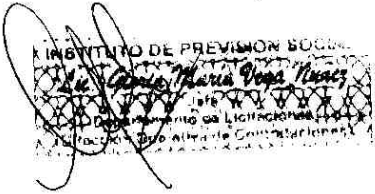 INSTITUTO DE PREVISIÓN SOCIAL
Lic. Gloria María Vega Nuñez
Jefe
Departamento de Licitaciones
Dirección Operativa de Contrataciones